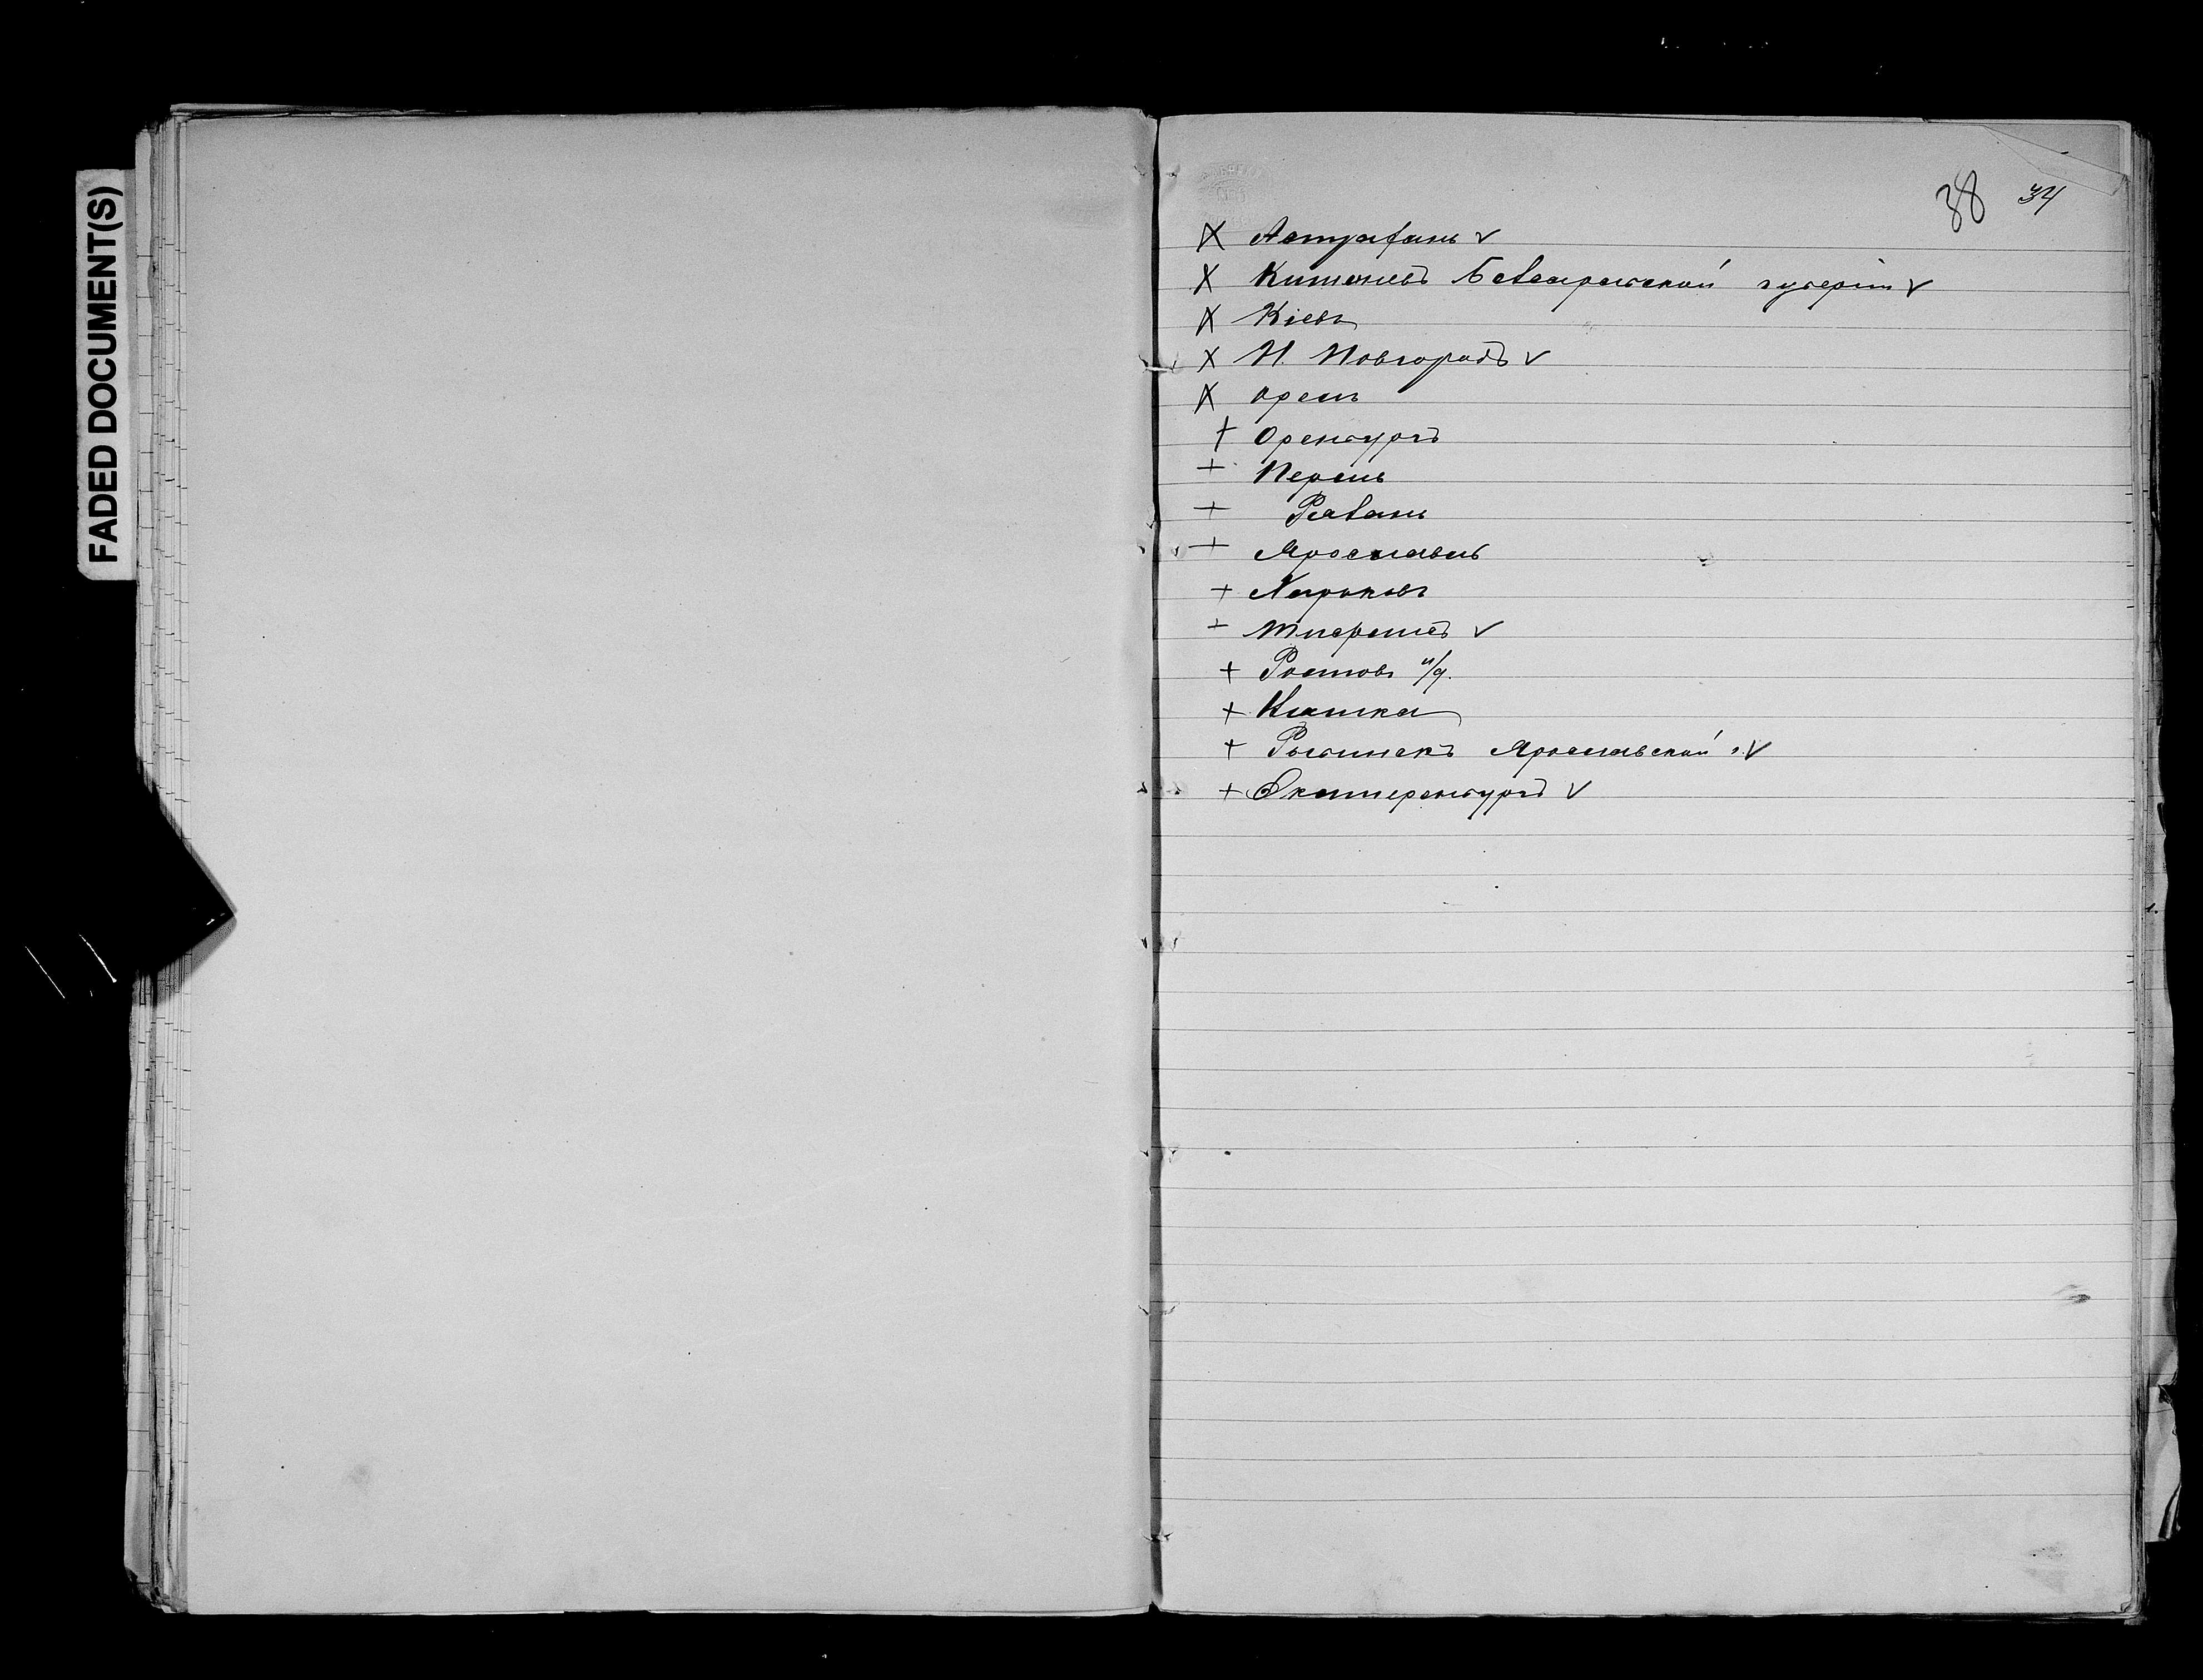 FADED DOCUMENT(S)
38 34
X Астрахань ✓
X Кишеневъ Бессарабской губерніи ✓
X Кіевъ
X Н. Новгородъ ✓
X Орелъ
+ Оренбургъ
+ Пермь
+ Рязань
+ Ярославль
+ Харьковъ
+ ✓
+ Ростовъ н/д.
+ 
+ Рыбинскъ Ярославской г. ✓
+ Екатеренбургъ ✓